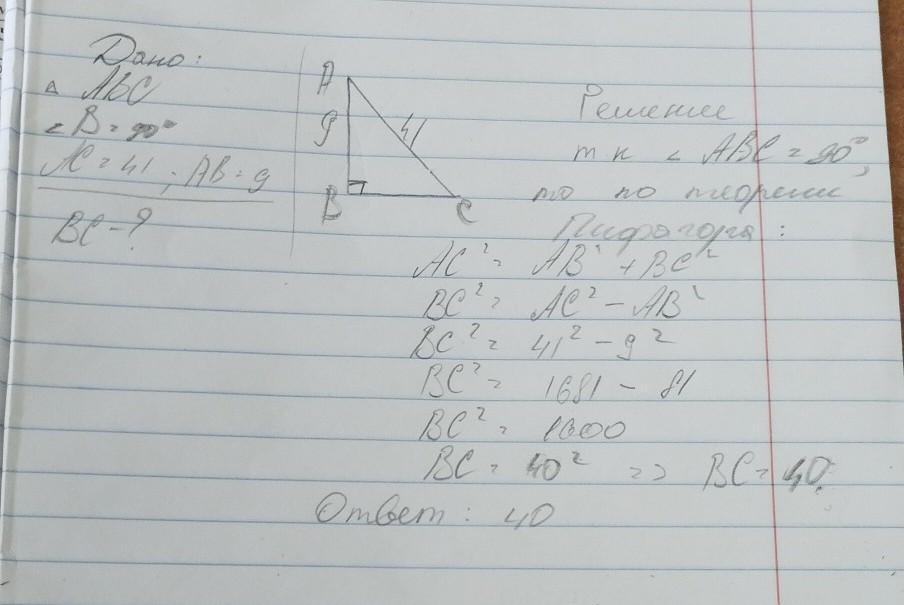 Дано:
△ ABC
∠B = 90°
AC = 41 ; AB = 9
BC - ?
A
9
41
B
C
Решение
т к ∠ ABC = 90°,
то по теореме
Пифагора :
AC² = AB² + BC²
BC² = AC² - AB²
BC² = 41² - 9²
BC² = 1681 - 81
BC² = 1600
BC = 40² => BC = 40.
Ответ: 40